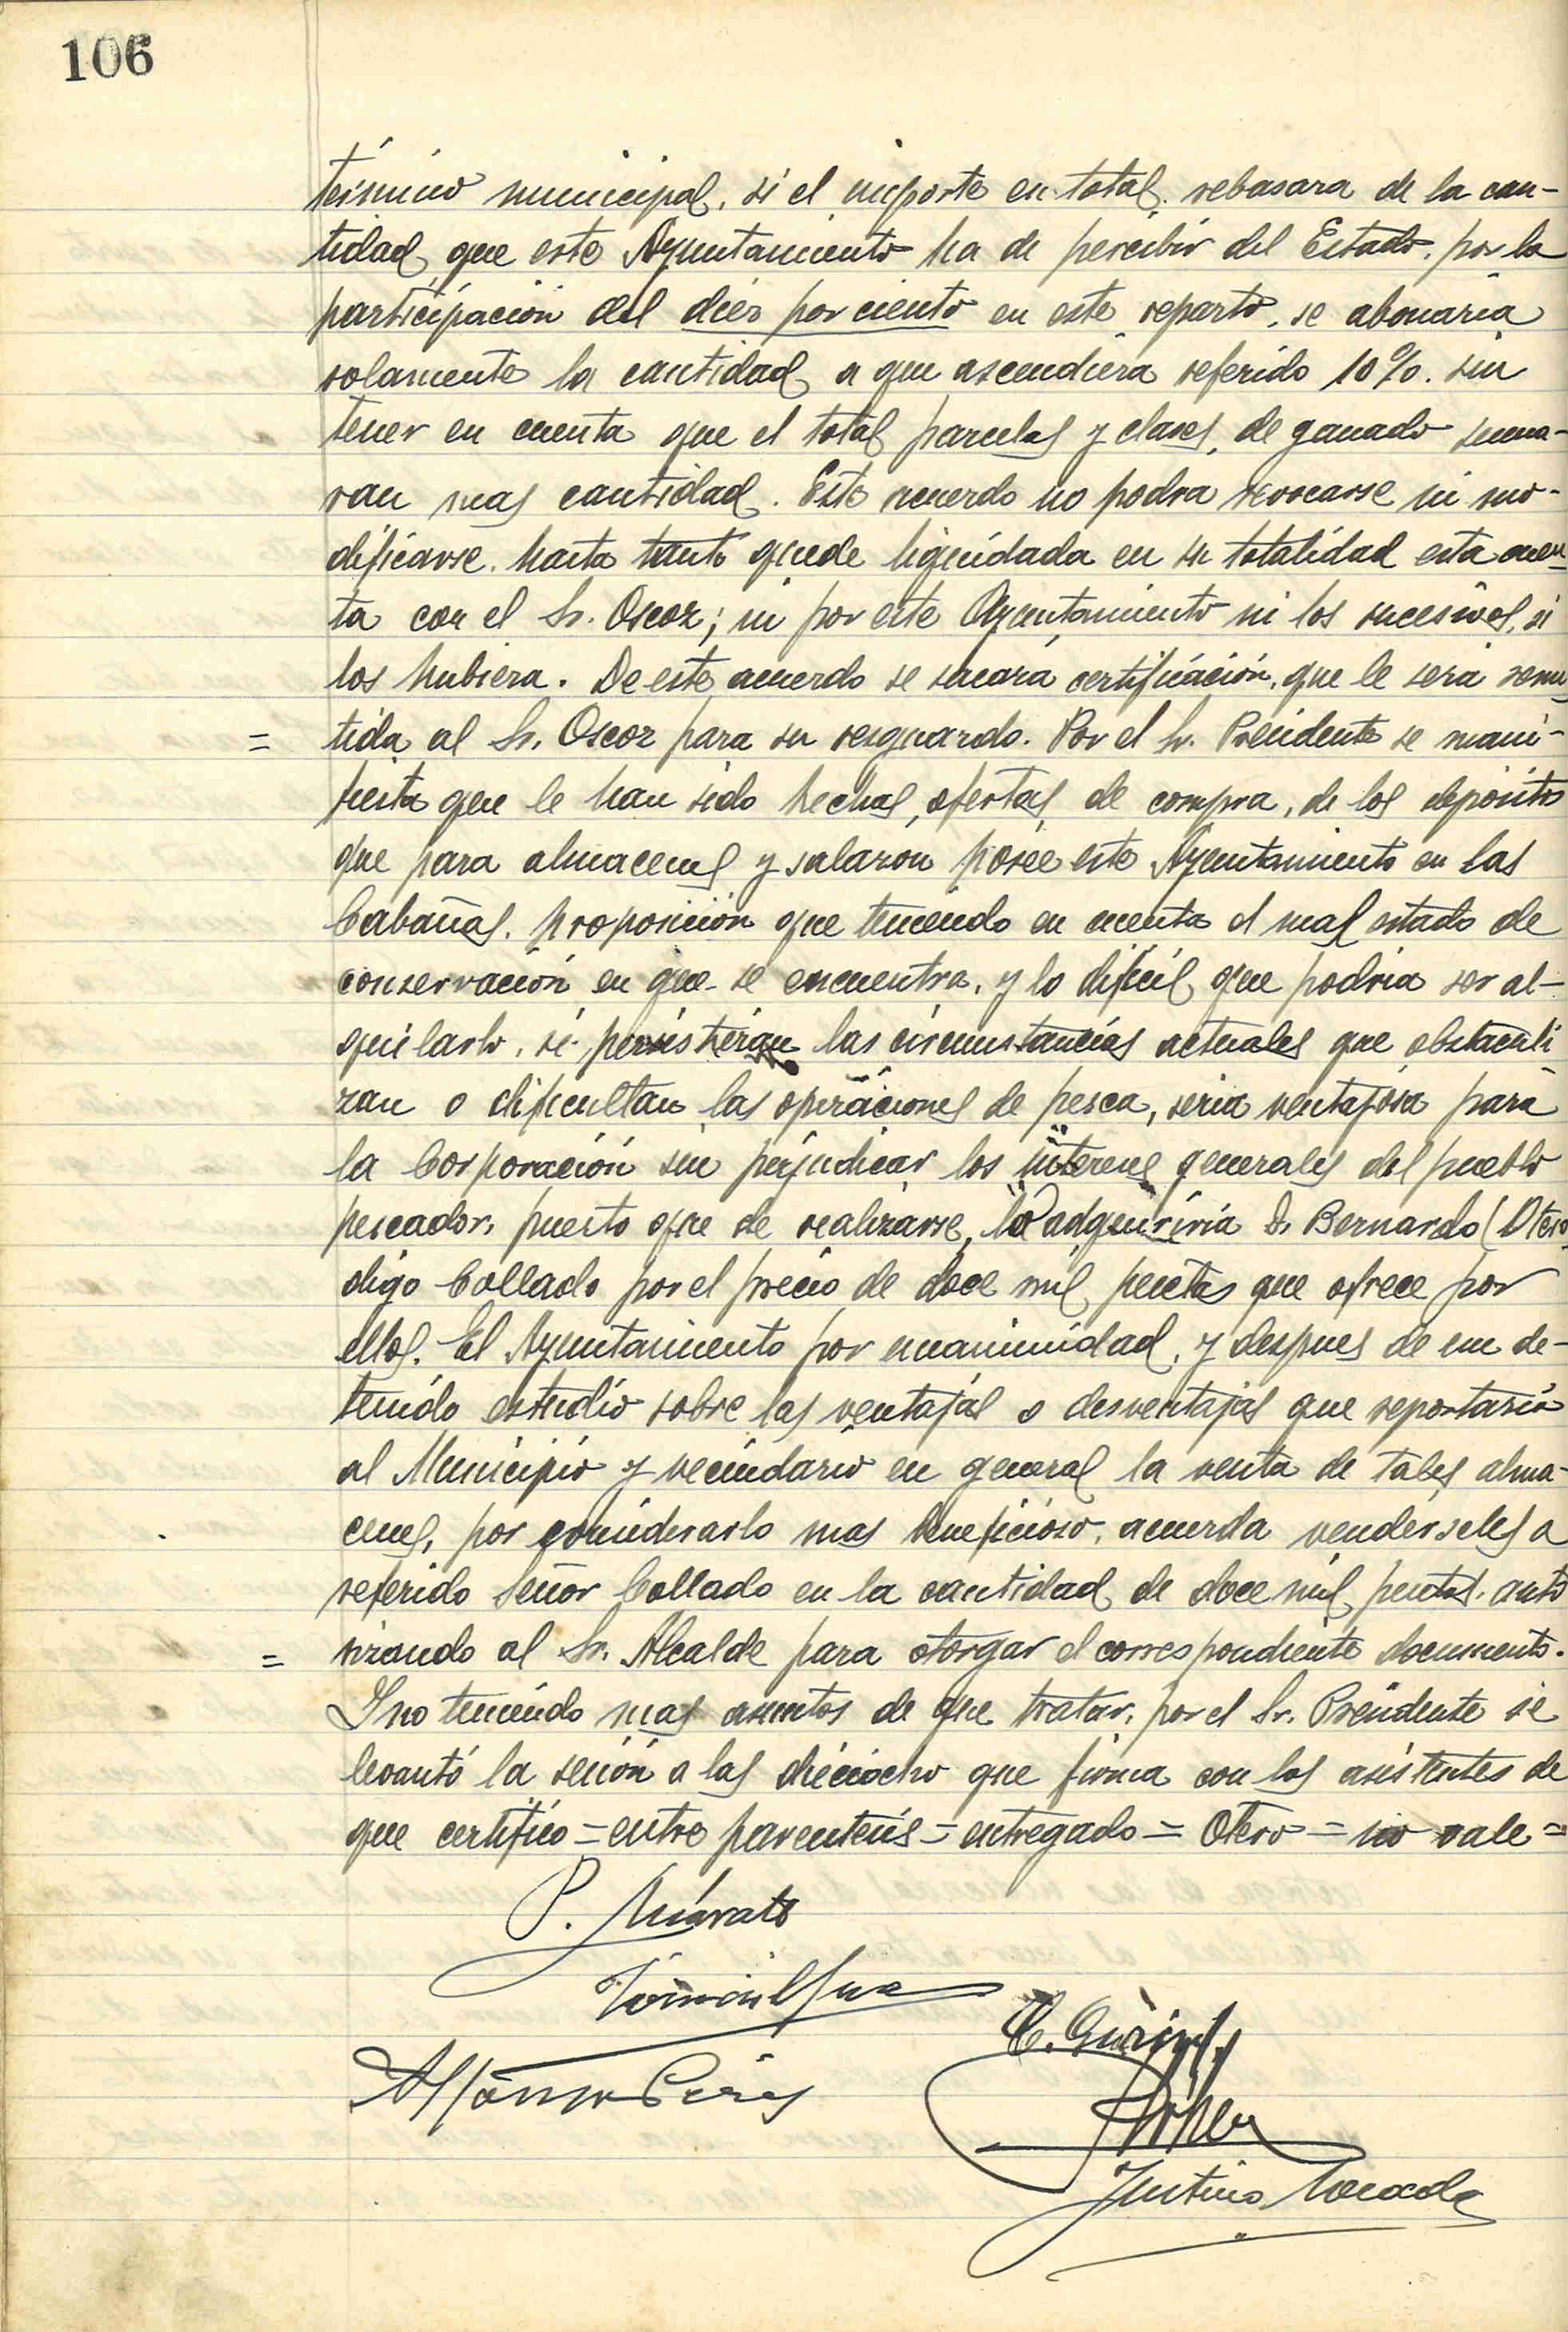 106
término municipal, si el importe en total, rebasara de la can-
tidad que este Ayuntamiento ha de percibir del Estado, por la
participación del diés por ciento en este reparto, se abonaria
solamente la cantidad a que ascendiera referido 10%. sin
tener en cuenta que el total parcelas y clases, de ganado suma-
ran mas cantidad. Este acuerdo no podra revocarse ni mo-
dificarse, hasta tanto quede liquidada en su totalidad esta cuen
ta con el Sr. Oscoz; ni por este Ayuntamiento ni los sucesivos, si
los hubiera. De este acuerdo se sacará certificación, que le será remi
= tida al Sr. Oscoz para su resguardo. Por el Sr. Presidente se mani-
fiesta que le han sido hechas, ofertas, de compra, de los depósitos
que para almacenes y salazon posée este Ayuntamiento en las
Cabañas. proposición que teniendo en cuenta el mal estado de
conservación en que se encuentra, y lo dificil que podria ser al-
quilarlo, si persistieran las circunstancias actuales que obstaculi
zan o dificultan las operaciones de pesca, seria ventajosa para
la Corporación sin perjudicar los intereses generales del pueblo
pescador, puesto que de realizarse, lo adquiriria D. Bernardo (Otero
digo Collado por el precio de doce mil pesetas que ofrece por
ellos. El Ayuntamiento por unanimidad, y despues de un de-
tenido estudio sobre las ventajas o desventajas que reportaria
al Municipio y vecindario en general la venta de tales alma-
cenes, por considerarlo mas beneficioso, acuerda vendérseles a
referido Señor Collado en la cantidad de doce mil pesetas. auto
= rizando al Sr. Alcalde para otorgar el correspondiente documento.
Y no teniendo mas asuntos de que tratar, por el Sr. Presidente se
levantó la sesión a las dieciocho que firma con los asistentes de
que certifico = entre parentesis = entregado = Otero = no vale =
P.
Alfonso
Justino